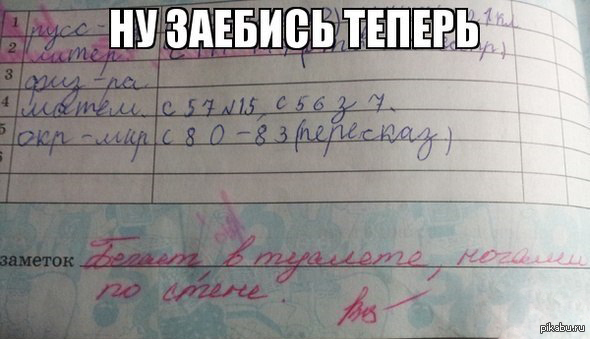 НУ ЗАЕБИСЬ ТЕПЕРЬ
1 русс-
2 литер.
3 физ-ра
4 матем. с 57 №15, с 56 з 7.
5 окр-мир с 80-83 (пересказ)
заметок Бегает в туалете, ногами
по стене.
pikabu.ru